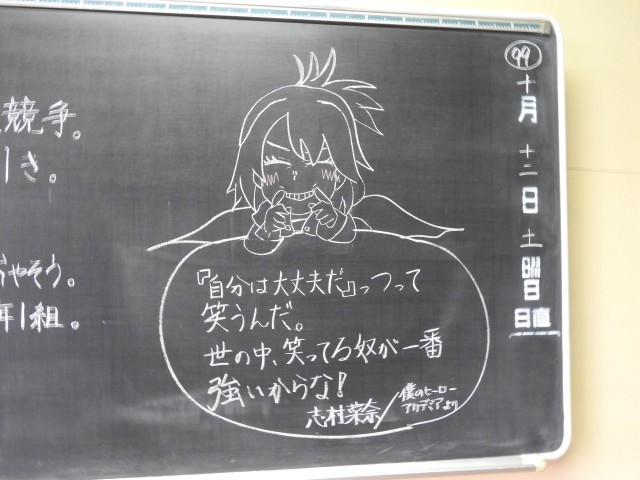 99
十月十二日土曜日
日直
競争。
しき。
おやそう。
年1組。
『自分は大丈夫だ』っつって
笑うんだ。
世の中、笑ってる奴が一番
強いからな!
志村菜奈/僕のヒーロー
アカデミアより